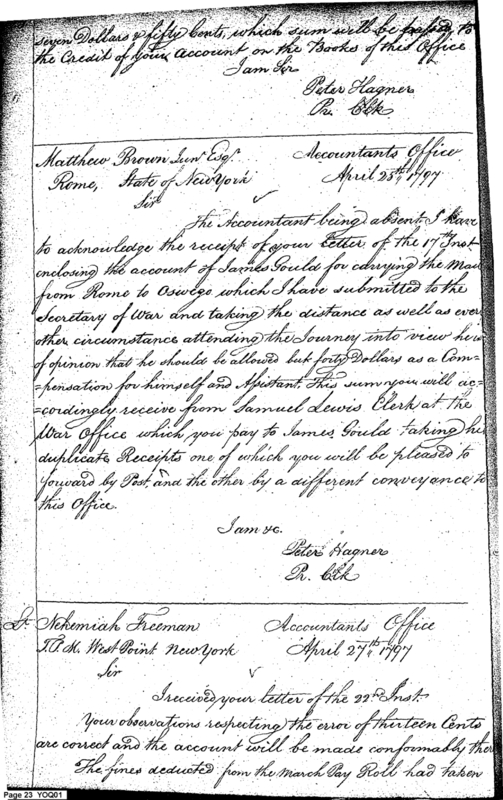 seven Dollars & fifty Cents, which sum will be passed to
the Credit of your Account on the Books of this Office
I am Sir
Peter Hagner
Pr. Clk
Matthew Brown Junr Esqr. Accountants Office
Rome, State of New York April 25th 1797
Sir
The Accountant being absent, I have
to acknowledge the receipt of your letter of the 17th Inst
enclosing the account of James Gould for carrying the Mail
from Rome to Oswego which I have submitted to the
Secretary of War and taking the distance as well as every
other circumstance attending the Journey into view he is
of opinion that he should be allowed but forty Dollars as a Com-
=pensation for himself and Assistant, This sum you will ac-
=cordingly receive from Samuel Lewis Clerk at the
War Office which you pay to James Gould taking his
duplicate Receipts one of which you will be pleased to
forward by Post, and the other by a different conveyance to
this Office.
I am &c.
Peter Hagner
Pr. Clk
Nehemiah Freeman Accountants Office
West Point New York April 27th 1797
Sir
I received your letter of the 22nd Inst.
Your observations respecting the error of thirteen Cents
are correct and the account will be made conformably
The fines deducted from the March Pay Roll had taken
Page 23 YOQ01